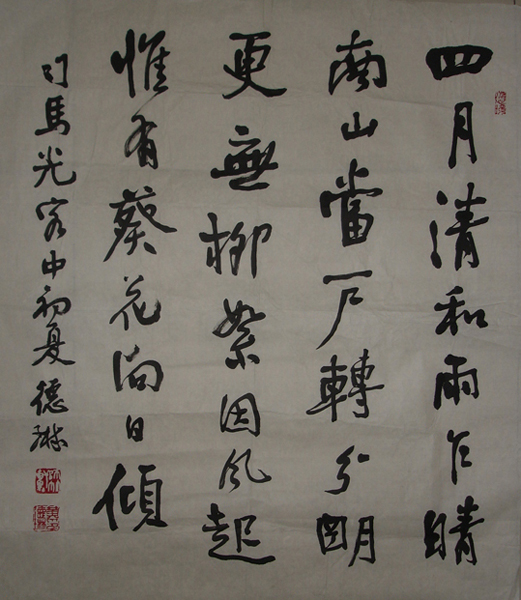 四月清和雨乍晴
南山當戶轉分明
更無柳絮因風起
惟有葵花向日傾
司馬光客中初夏德琳